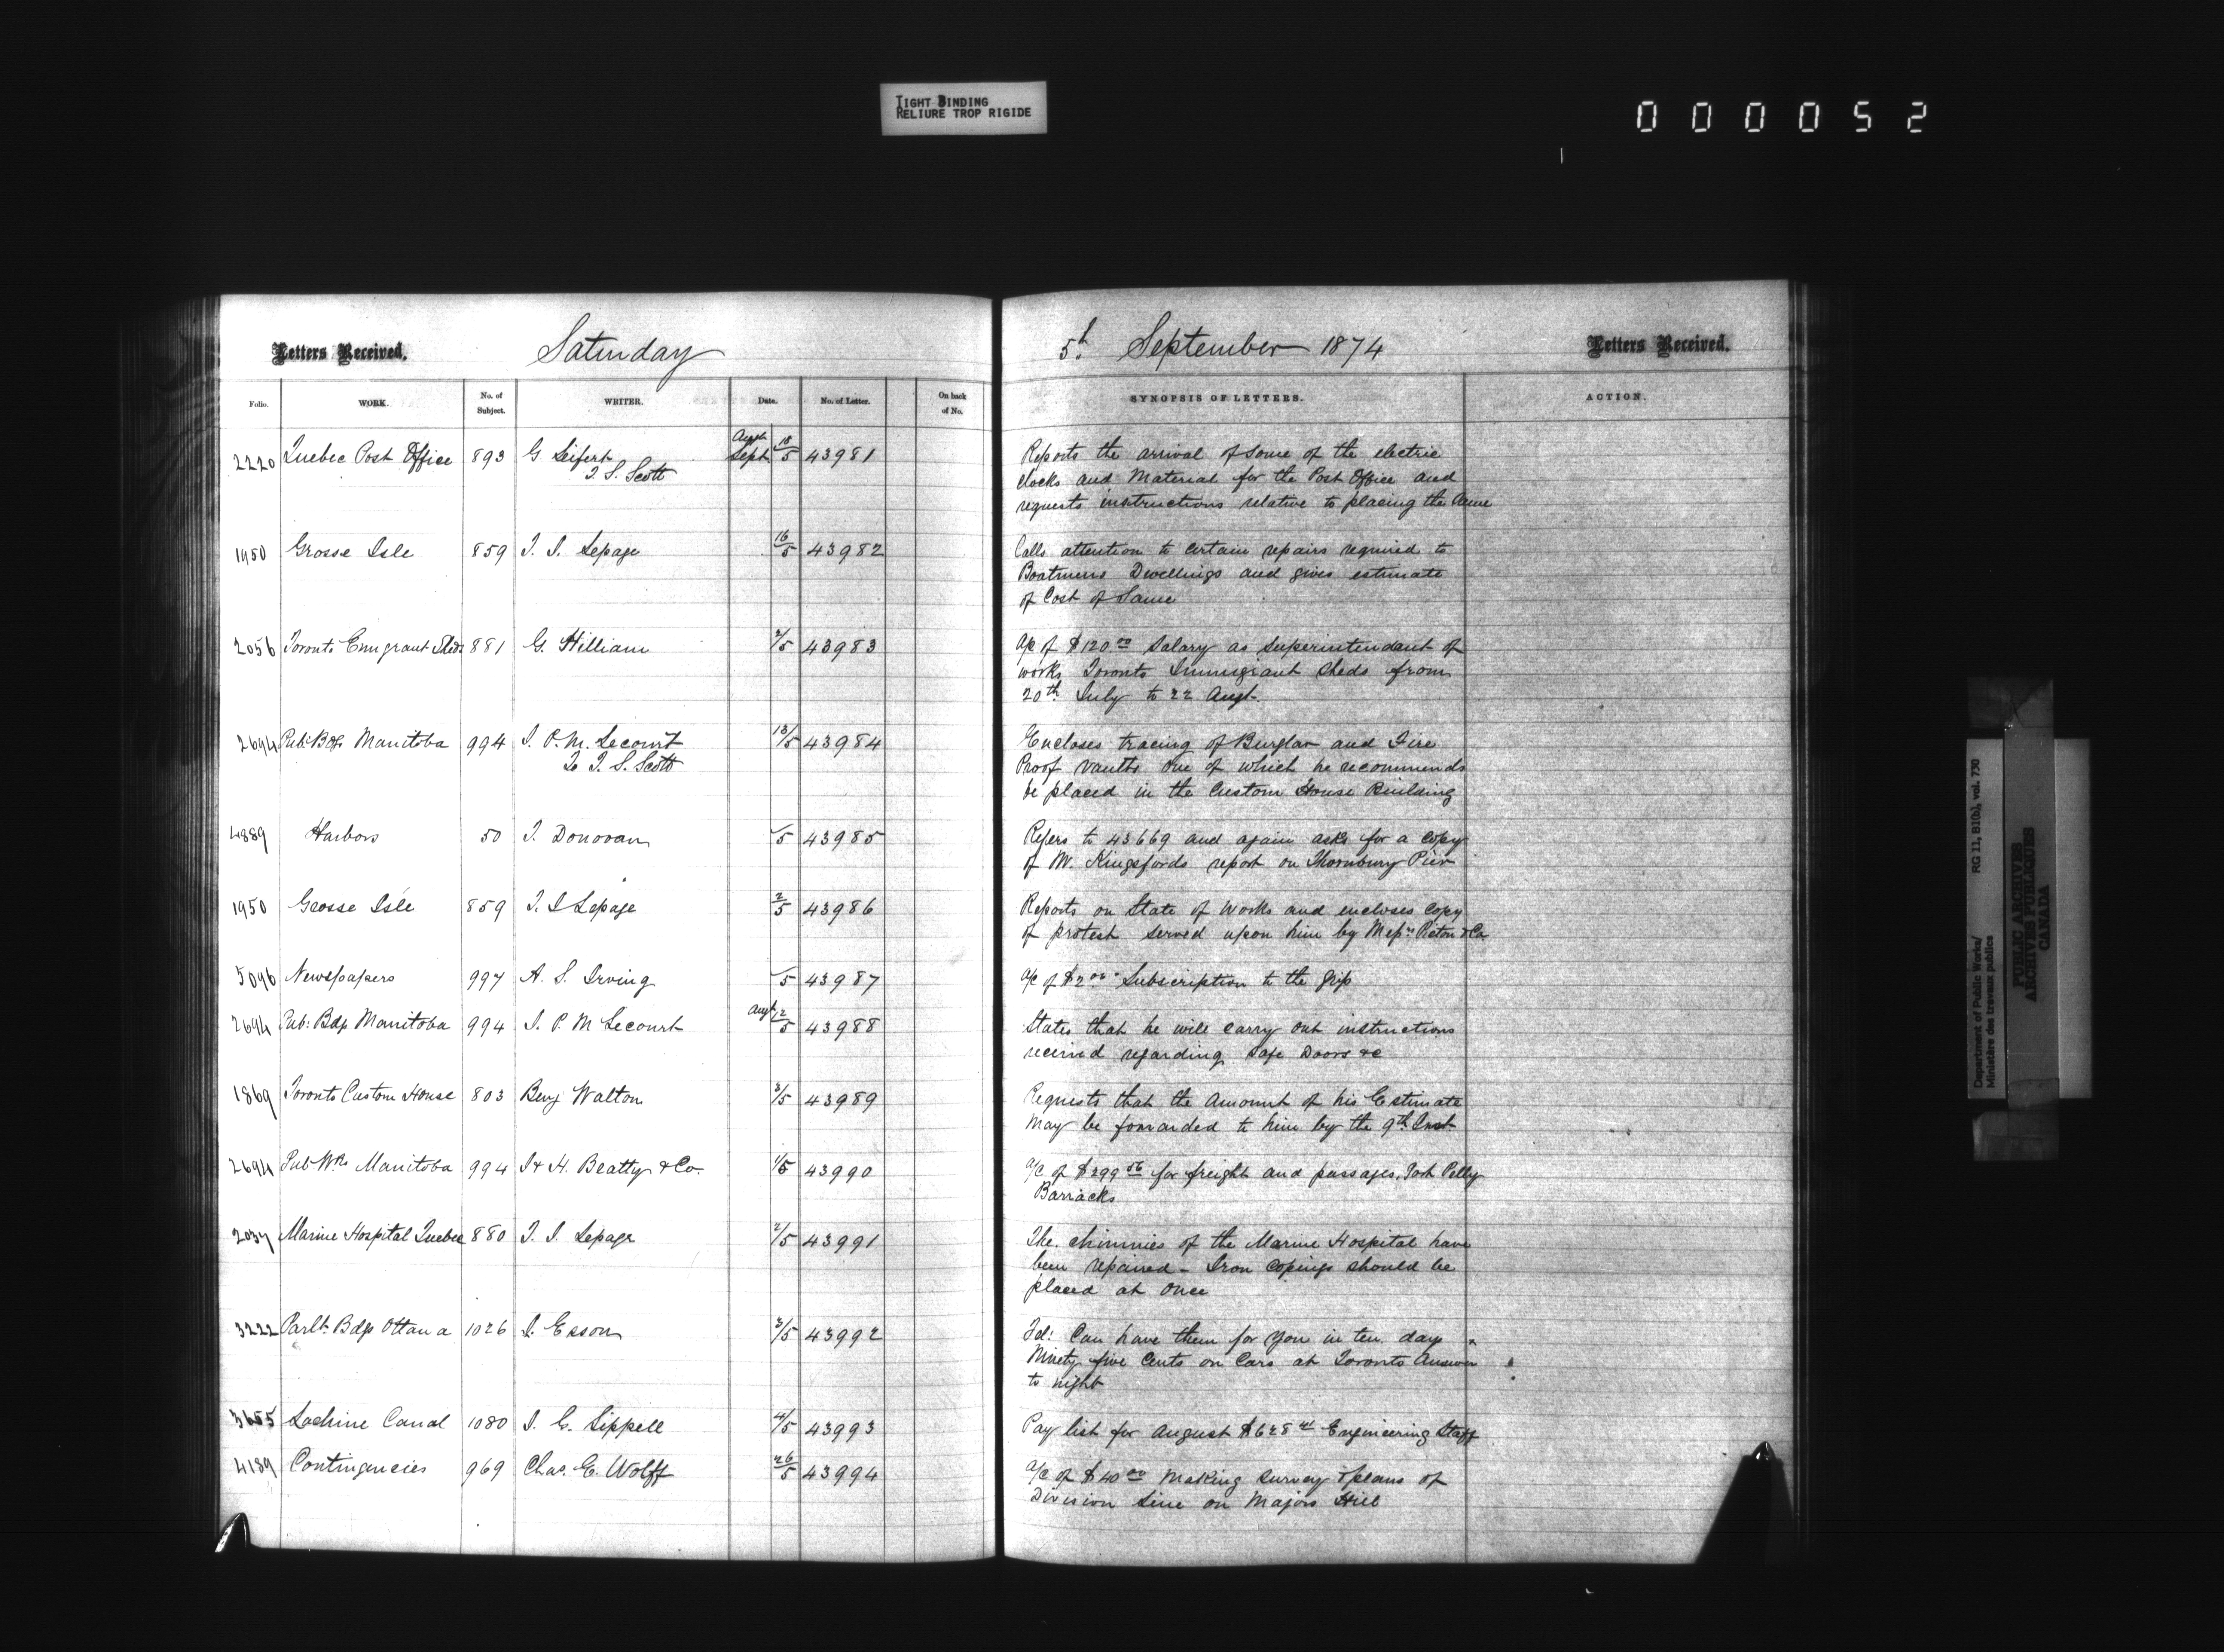 TIGHT BINDING
RELIURE TROP RIGIDE
000052
Letters Received. Saturday 5th September 1874 Letters Received.
Folio. WORK. No. of Subject. WRITER. Date. No. of Letter. On back of No. SYNOPSIS OF LETTERS. ACTION.
2220 Quebec Post Office 893 G Seifert Sept 18/5 43981 Reports the arrival of some of the electric
T. S. Scott clocks and Material for the Post Office and
requests instructions relative to placing the same
1950 Grosse Isle 859 T. S. Lepage 16/5 43982 Calls attention to certain repairs required to
Boatmens Dwellings and gives estimate
of Cost of Same
2056 Toronto Emigrant Sheds 881 G. Hilliam 2/5 43983 A/c of $120.00 Salary as Superintendant of
works Toronto Immigrant Sheds from
20th July to 22 Augt.
2694 Pub: Bdgs Manitoba 994 J. P. M. Lecourt 13/5 43984 Encloses tracing of Burglar and Fire
To T. S. Scott Proof Vaults one of which he recommends
be placed in the Custom House Building
4889 Harbors 50 J. Donovan 5 43985 Refers to 43669 and again asks for a copy
of Mr. Kingsfords report on Thornbury Pier
1950 Grosse Isle 859 T. S Lepage 2/5 43986 Reports on State of Works and encloses copy
of protest served upon him by Messrs Picton & Co
5096 Newspapers 997 A. S. Irving 5 43987 A/c of $2.00 Subscription to the Grip
2694 Pub: Bdgs Manitoba 994 J. P. M Lecourt Augt 12/5 43988 States that he will carry out instructions
received regarding Safe Doors &c
1869 Toronto Custom House 803 Benj Walton 3/5 43989 Requests that the Amount of his Estimate
May be forwarded to him by the 9th Inst
2694 Pub Wks Manitoba 994 J & H. Beatty & Co. 1/5 43990 A/c of $299.56 for freight and passages, Fort Pelly
Barracks
2037 Marine Hospital Quebec 880 T. S. Lepage 2/5 43991 The chimnies of the Marine Hospital have
been repaired - Iron Copings should be
placed at once
3222 Parlt. Bdgs Ottawa 1026 J. Esson 3/5 43992 Tel: Can have them for you in ten days
Ninety five Cents on Cars at Toronto Answer
to night
3655 Lachine Canal 1080 J. G. Sippell 4/5 43993 Pay list for August $628.41 Engineering Staff
4189 Contingencies 969 Chas. E. Wolff 26/5 43994 A/c of $40.00 Making Survey & plans of
Division Line on Majors Hill
Department of Public Works/ RG 11, B1(a), vol. 730
Ministère des travaux publics
PUBLIC ARCHIVES
ARCHIVES PUBLIQUES
CANADA